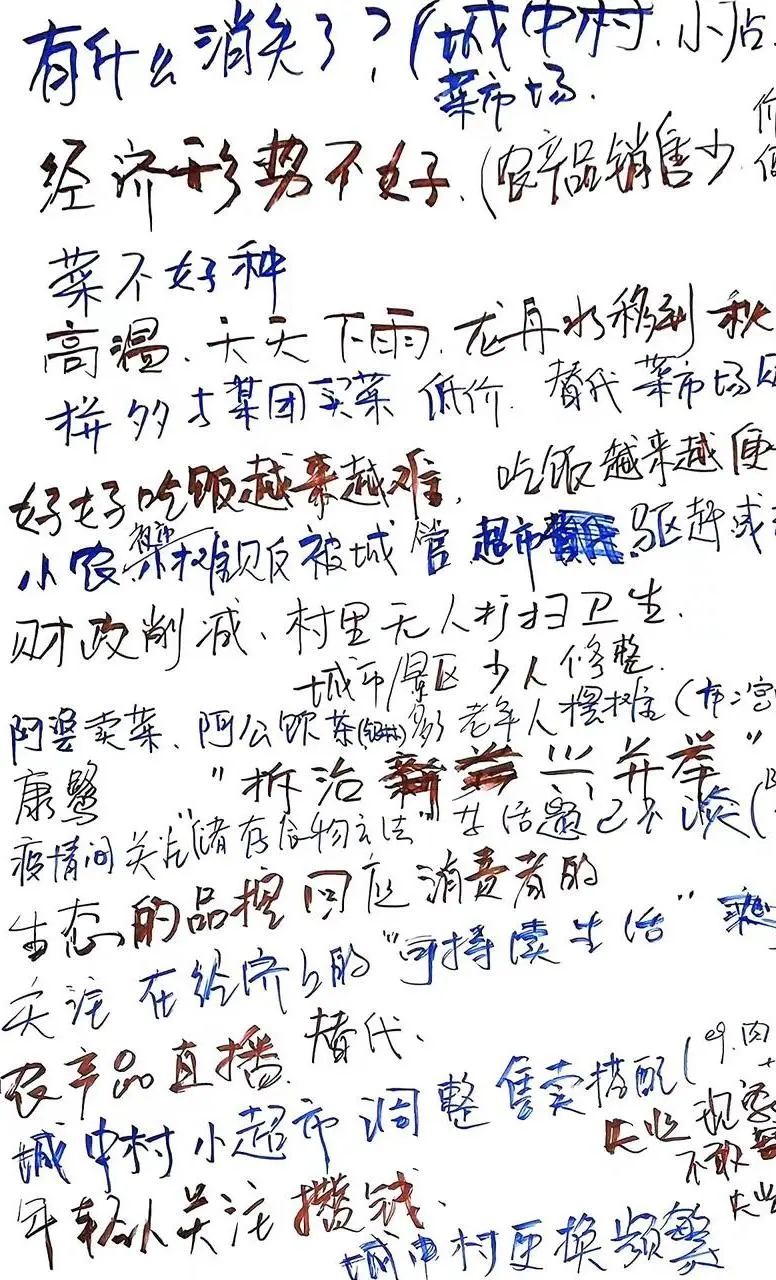 有什么消失了？（城中村、小店、
菜市场.
经济形势不好.（农产品销售少
菜不好种
高温、天天下雨、龙舟水移到秋
拼多多某团买菜 低价. 替代 菜市场
好好吃饭越来越难, 吃饭越来越便
小农 摊贩被城管 超市 驱赶或
财政削减、村里无人打扫卫生.
城市/景区 少人修整.
阿婆卖菜、阿公饮茶 老年人摆摊（
康鹭 "拆治兴并举"
疫情间关注"储存食物方法" 生活 已不谈（
生态的品控回应消费者的
关注 在经济上的"可持续生活"
农产品直播. 替代、
城中村小超市调整售卖搭配（eg.肉
失业现象
不敢
失业
年轻人关注攒钱、
城中村更换频繁